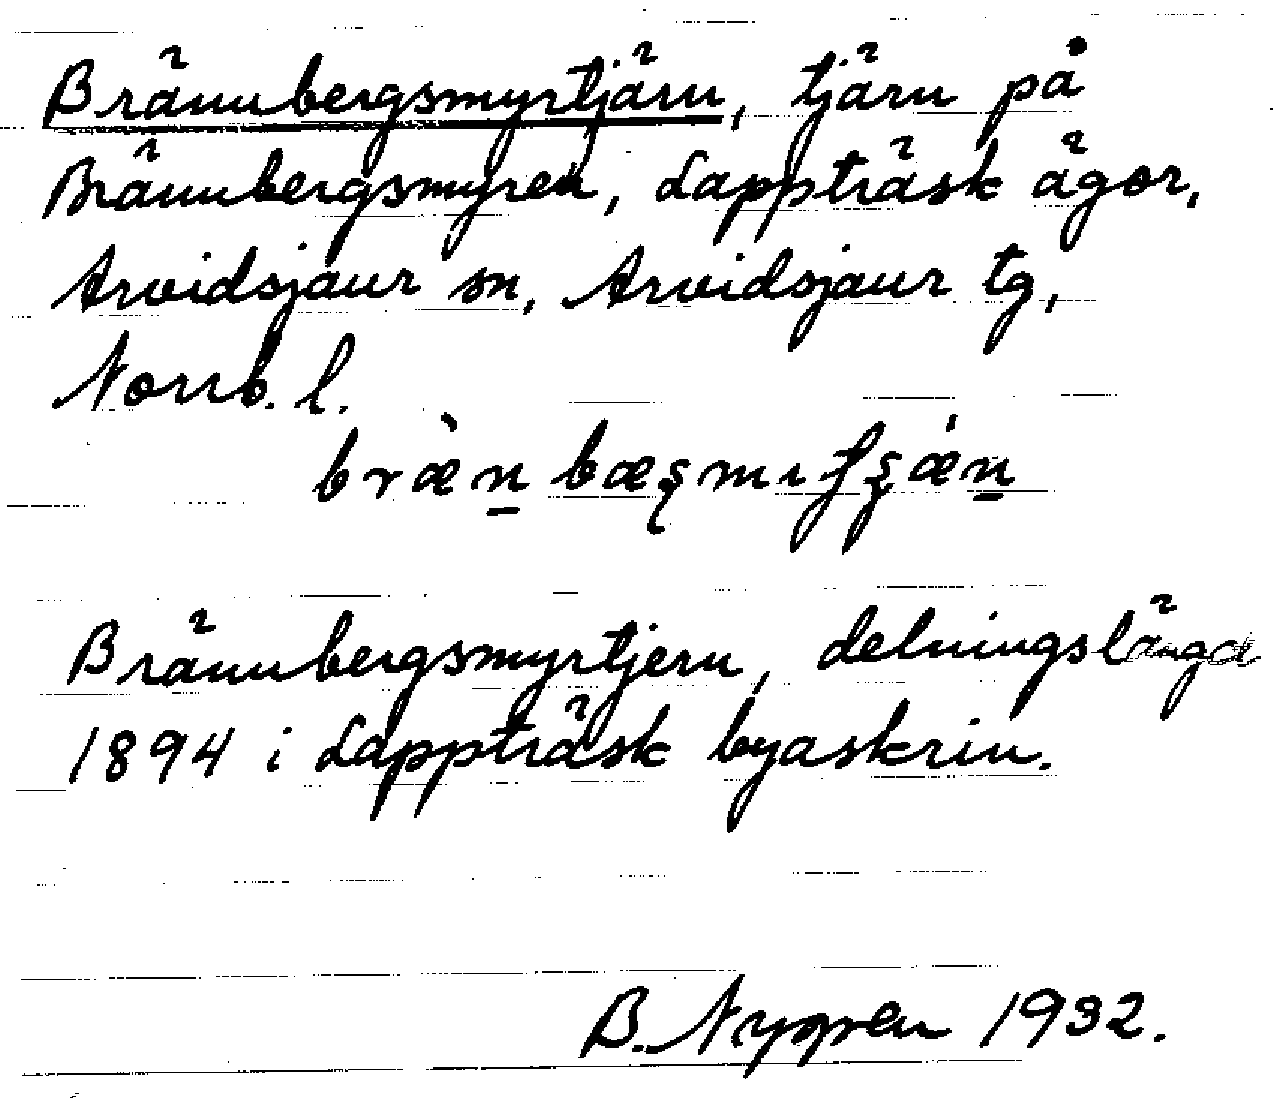 Brännbergsmyrtjärn, tjärn på
Brännbergsmyren, Lappträsk ägor,
Arvidsjaur sn, Arvidsjaur tg,
Norrb. l.
Brännbergsmyrtjern, delningslängd
1894 i Lappträsk byaskrin.
B. Nygren 1932.